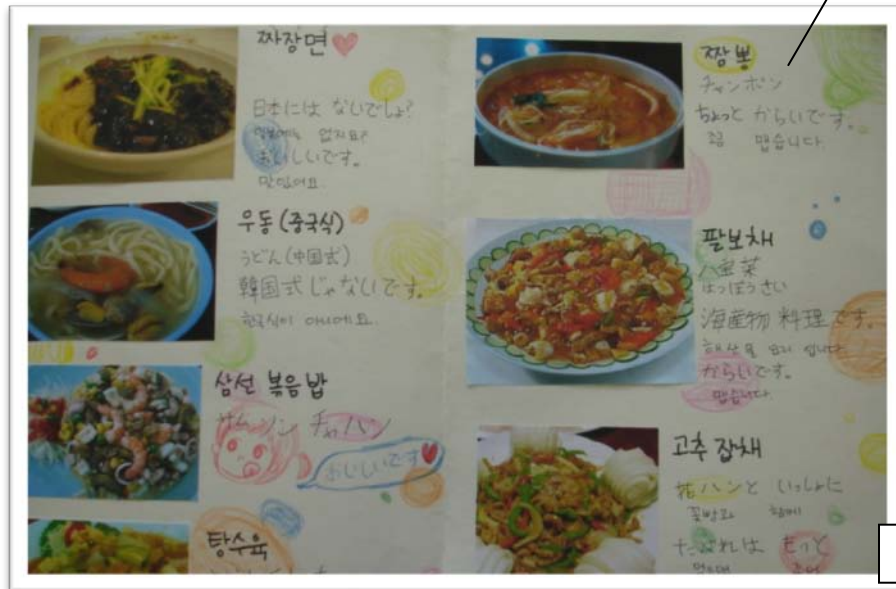 짜장면
日本には ないでしょ?
일본에는 없지요?
おいしいです。
맛있어요.
우동 (중국식)
うどん (中国式)
韓国式じゃないです。
한국식이 아니에요.
삼선 볶음밥
サムソン チャハン
おいしいです
탕수육
짬뽕
チャンポン
ちょっと からいです。
좀 맵습니다.
팔보채
八宝菜
はっぽうさい
海産物 料理です。
해산물 요리 입니다.
からいです。
맵습니다.
고추잡채
花ハンと いっしょに
꽃빵과 함께
たべれは もっと